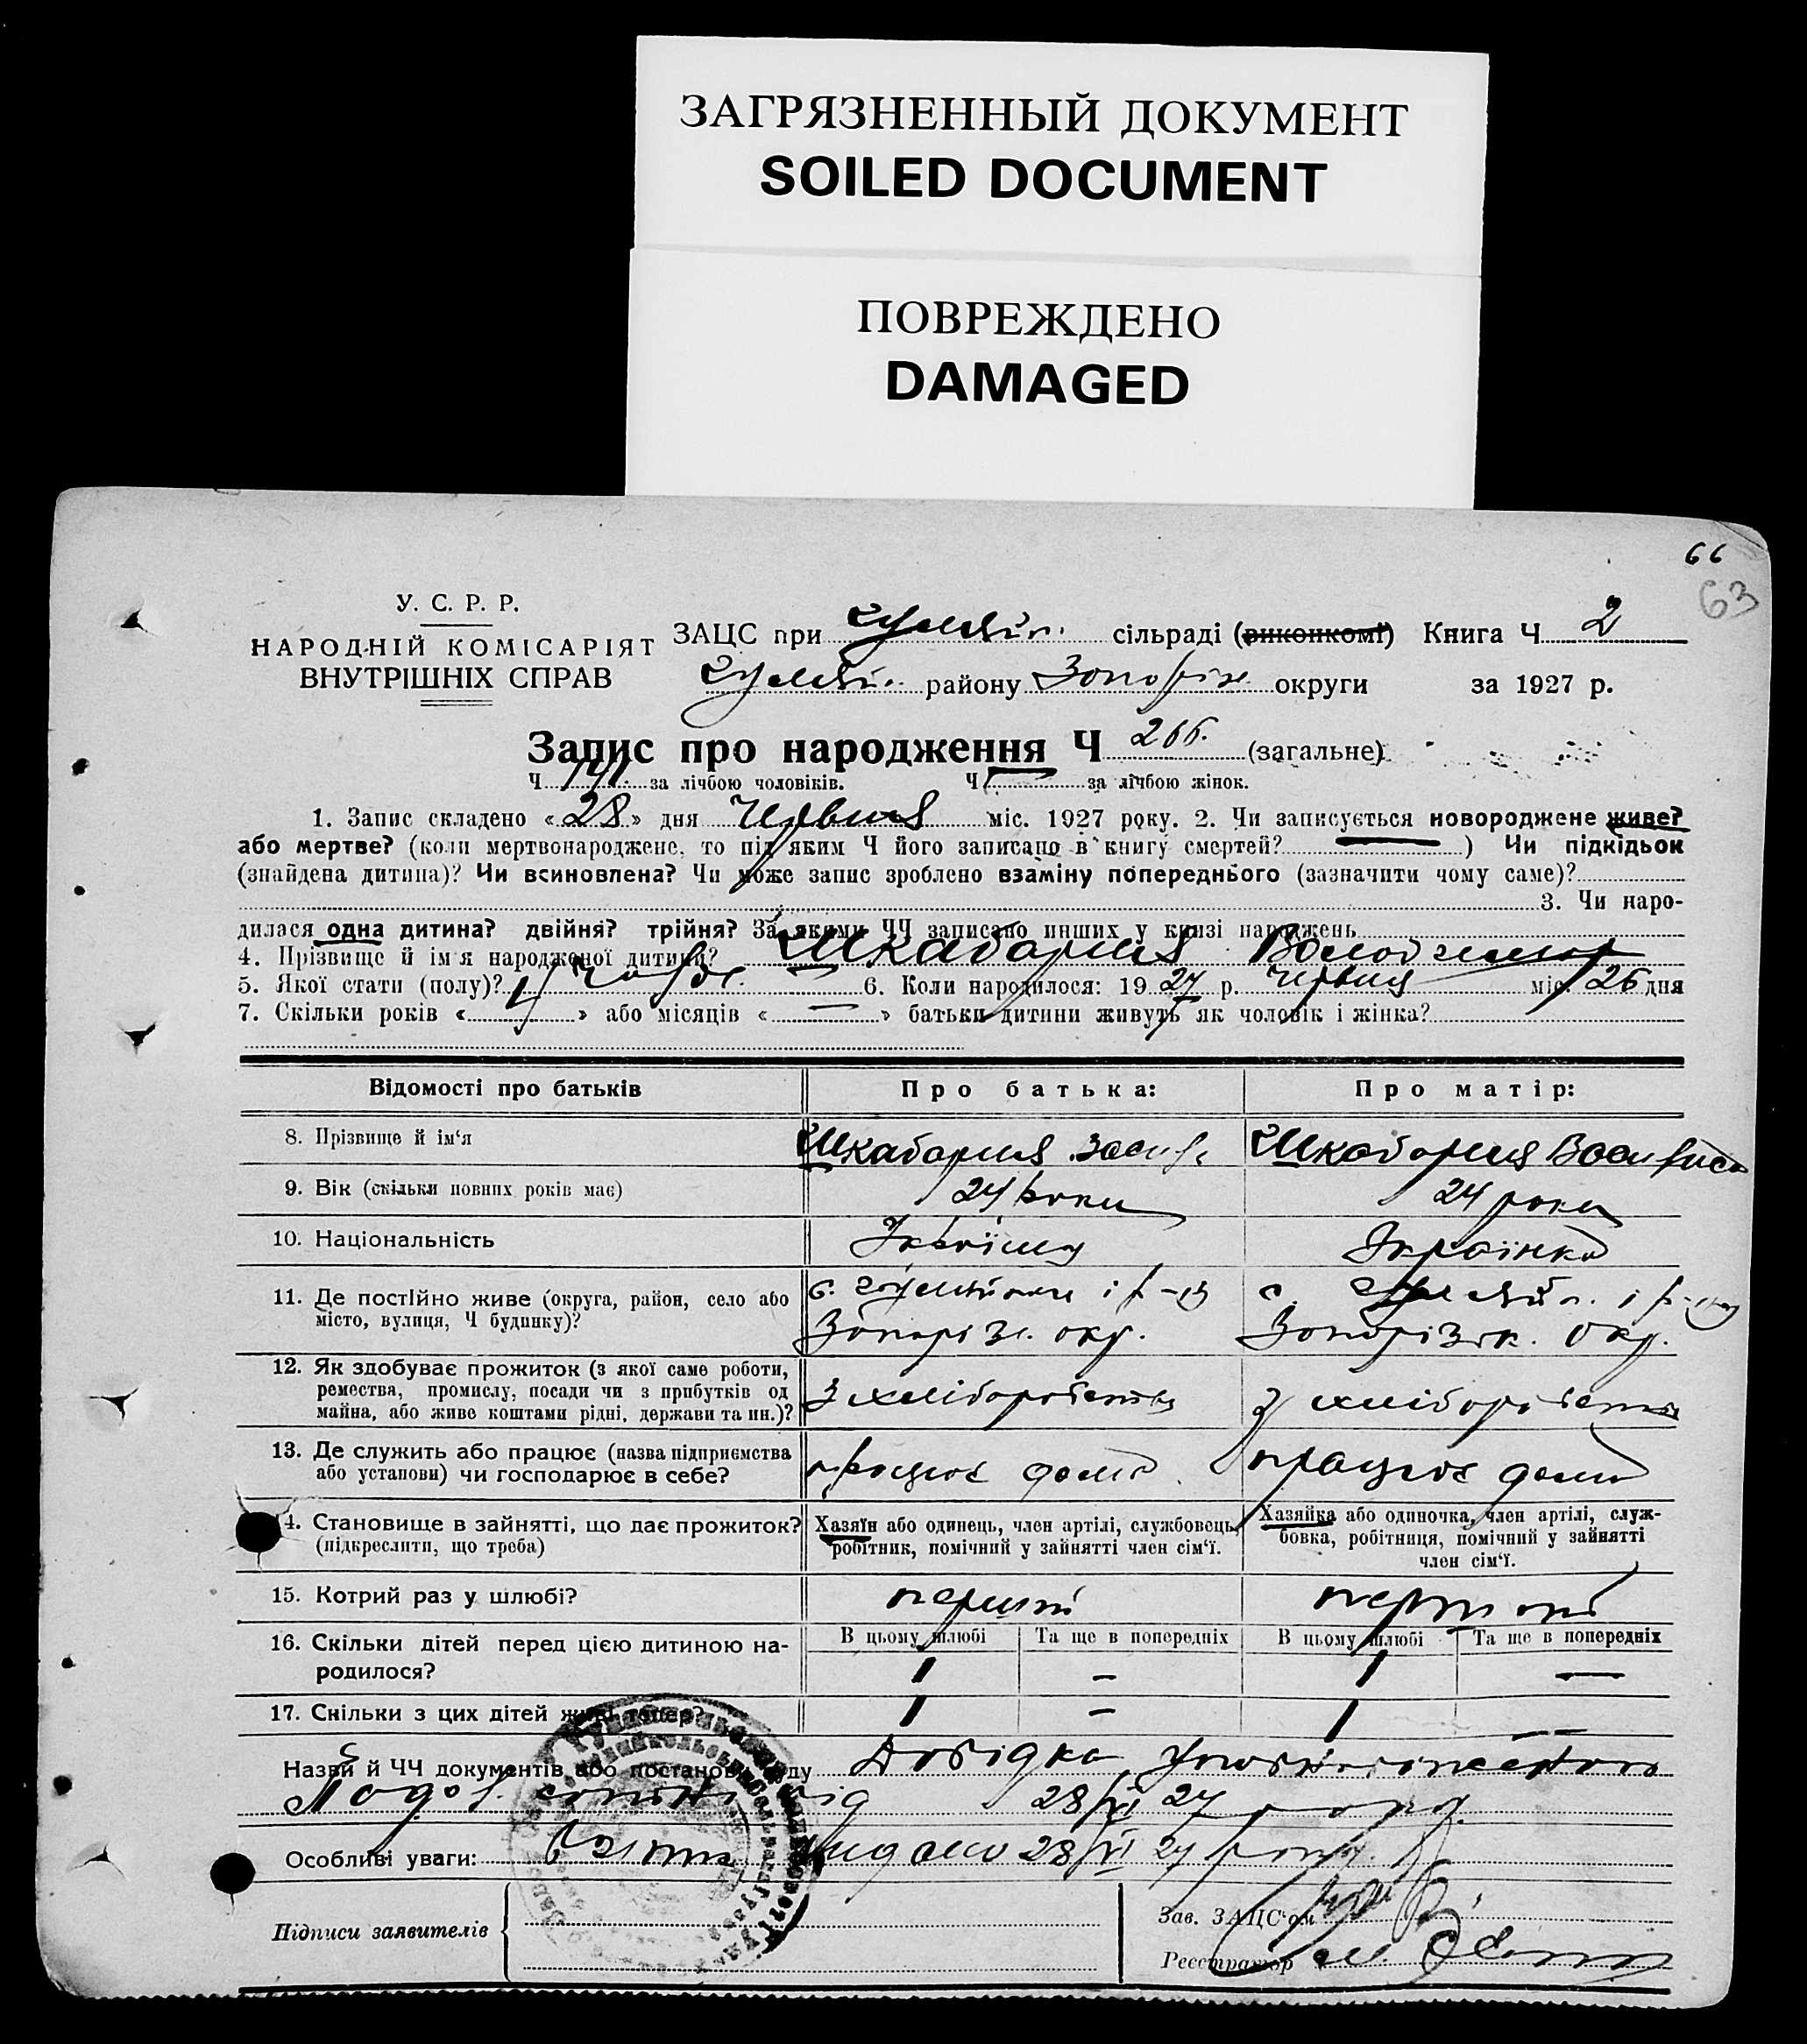 ЗАГРЯЗНЕННЫЙ ДОКУМЕНТ
SOILED DOCUMENT
ПОВРЕЖДЕНО
DAMAGED
66
63
У. С. Р. Р.
НАРОДНІЙ КОМІСАРІЯТ
ВНУТРІШНІХ СПРАВ
ЗАЦС при Гуляйп. сільраді (виконкомі) Книга Ч 2
Гуляйп. району Запоріж. округи за 1927 р.
Запис про народження Ч 266. (загальне)
Ч 141 за лічбою чоловіків. Ч — за лічбою жінок.
1. Запис складено «28» дня Червня міс. 1927 року. 2. Чи записується новороджене живе?
або мертве? (коли мертвонароджене, то під яким Ч його записано в книгу смертей? — ) Чи підкідьок
(знайдена дитина)? Чи всиновлена? Чи може запис зроблено взаміну попереднього (зазначити чому саме)?
3. Чи наро-
дилася одна дитина? двійня? трійня? За якими ЧЧ записано инших у книзі народжень
4. Прізвище й ім'я народженої дитини? Шкабарня Володимир
5. Якої стати (полу)? 6. Коли народилося: 1927 р. червня міс. 26 дня
7. Скільки років « » або місяців « — » батьки дитини живуть як чоловік і жінка?
Відомості про батьків Про батька: Про матір:
8. Прізвище й ім'я Шкабарня Шкабарня
9. Вік (скільки повних років має) 24 роки 24 роки
10. Національність Українка
11. Де постійно живе (округа, район, село або
місто, вулиця, Ч будинку)?
Запоріз. окр. Запорізьк. Окр.
12. Як здобуває прожиток (з якої саме роботи,
ремества, промислу, посади чи з прибутків од
майна, або живе коштами рідні, держави та ин.)?
З хліборобства З хліборобства
13. Де служить або працює (назва підприємства
або установи) чи господарює в себе?
працює дома працює дома
14. Становище в зайнятті, що дає прожиток?
(підкреслити, що треба)
Хазяїн або одинець, член артілі, службовець,
робітник, помічний у зайнятті член сім'ї.
Хазяйка або одиночка, член артілі, служ-
бовка, робітниця, помічний у зайнятті
член сім'ї.
15. Котрий раз у шлюбі? перший
16. Скільки дітей перед цією дитиною на-
родилося?
В цьому шлюбі Та ще в попередніх В цьому шлюбі Та ще в попередніх
1 — 1 —
17. Скільки з цих дітей живі тепер? 1 — 1
Назви й ЧЧ документів або постанов суду Довідка
від 28/VI 27 року
Особливі уваги: Видано 28/VI 27 року
Підписи заявителів
Зав. ЗАЦС'ом
Реєстратор